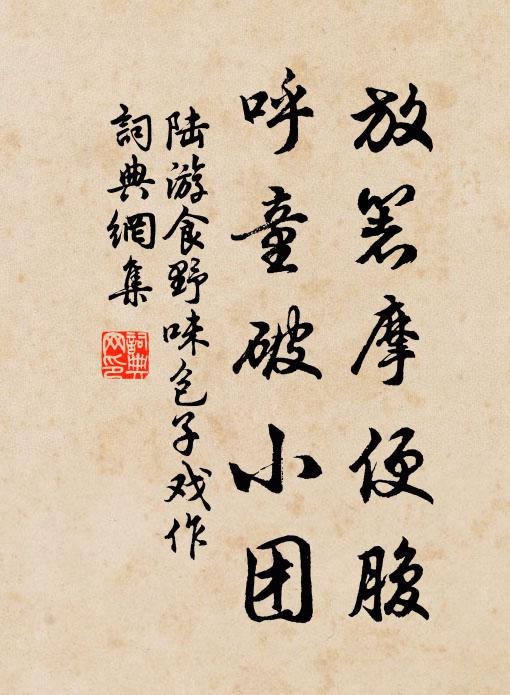 放箸摩便腹
呼童破小团
陆游食野味包子戏作
詞典網集
詞典
网印